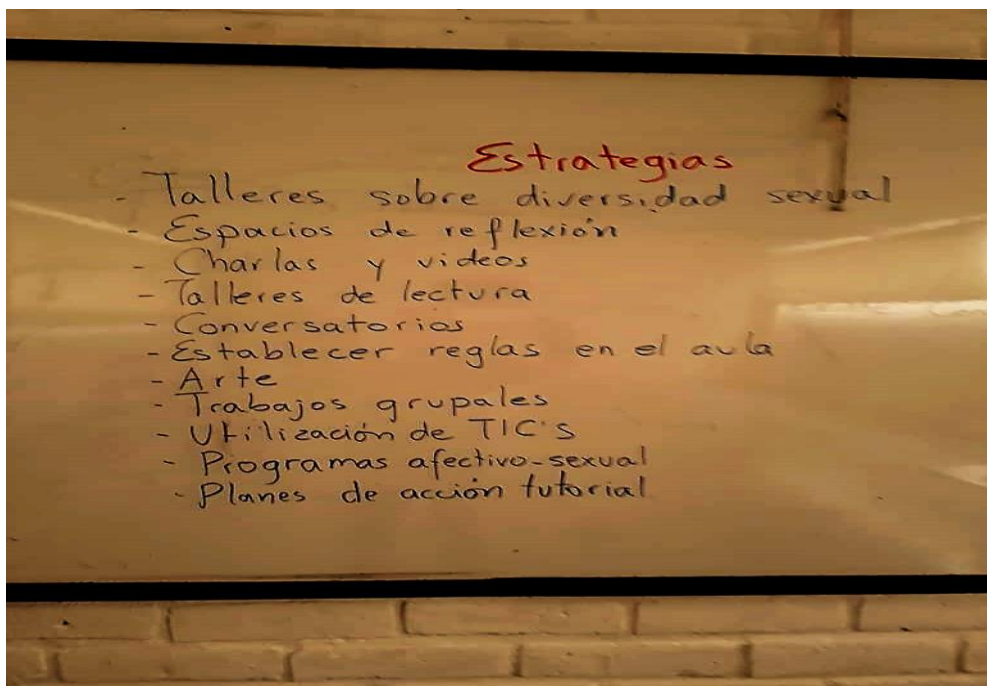 Estrategias
- Talleres sobre diversidad sexual
- Espacios de reflexión
- Charlas y videos
- Talleres de lectura
- Conversatorios
- Establecer reglas en el aula
- Arte
- Trabajos grupales
- Utilización de TIC'S
- Programas afectivo-sexual
- Planes de acción tutorial